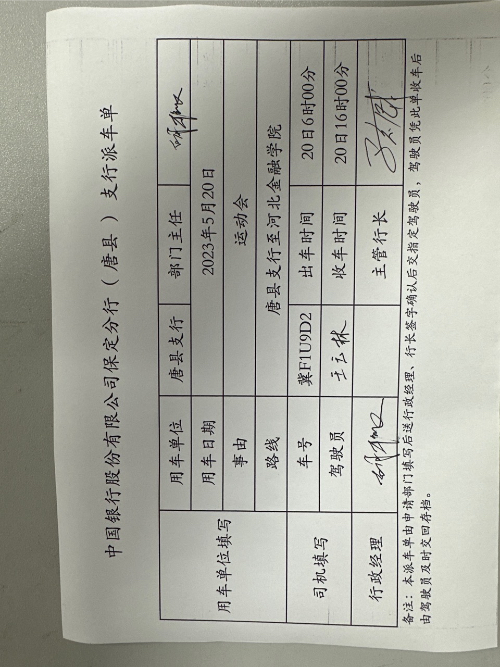 中国银行股份有限公司保定分行（唐县） 支行派车单
用车单位填写 用车单位 唐县支行 部门主任
用车日期 2023年5月20日
事由 运动会
路线 唐县支行至河北金融学院
司机填写 车号 冀F1U9D2 出车时间 20日6时00分
驾驶员 王云林 收车时间 20日16时00分
行政经理 主管行长
备注：本派车单由申请部门填写后送行政经理、行长签字确认后交指定驾驶员，驾驶员凭此单收车后
由驾驶员及时交回存档。